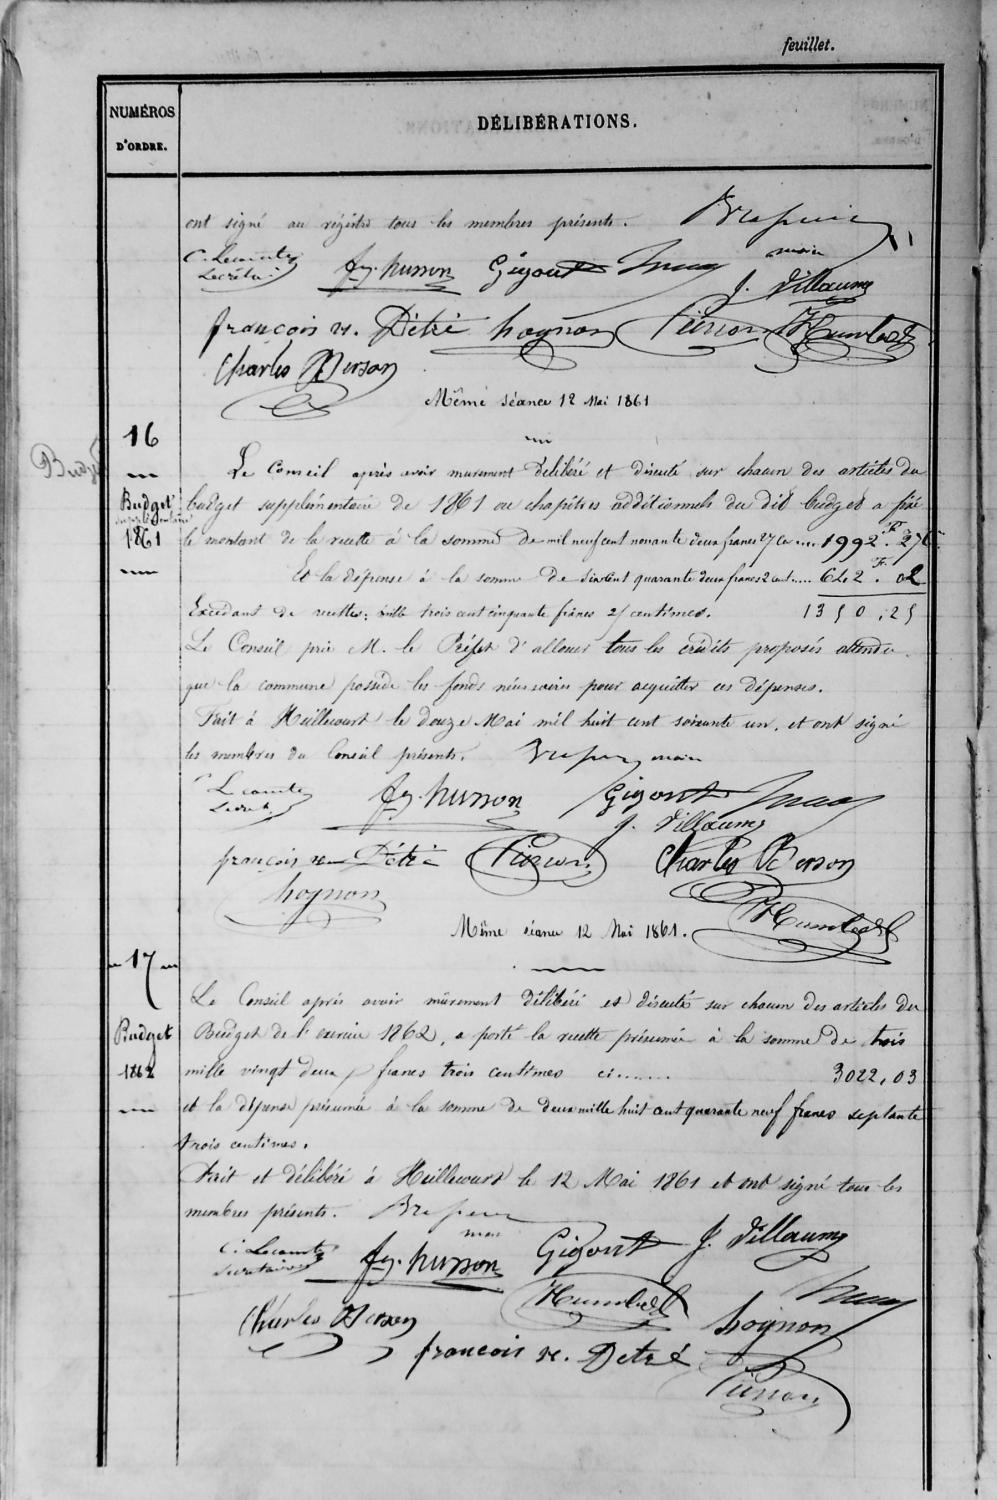 feuillet.
NUMÉROS
D'ORDRE.
DÉLIBÉRATIONS.
ont signé au régistre tous les membres présents.
maire
C. Lecomte
Secrétaire
fçs. husson Gigout
J. Villaume
françois n. Détré hognon Pierson Humbert
Charles Berson
Même séance 12 Mai 1861
16
Budget
supplémentaire
1861
Le Conseil après avoir murement délibéré et discuté sur chacun des articles du
budget supplémentaire de 1861 ou chapitres additionnels du dit budget a fixé
le montant de la recette à la somme de mil neuf cent nonante deux francs 27 Ce .... 1992 F. 27 C
Et la dépense à la somme de six cent quarante deux francs 2 cent..... 642 F. 02
Excédant de recettes: mille trois cent cinquante francs 25 centimes. 1350,25
Le Conseil prie M. le Préfet d'allouer tous les crédits proposés attendu
que la commune possède les fonds nécessaires pour acquitter ces dépenses.
Fait à Huillecourt le douze Mai mil huit cent soixante un, et ont signé
les membres du Conseil présents. maire
C. Lecomte
Secrét.
fçs. husson Gigout
J. Villaume
françois n. Détré Pierson Charles Berson
hognon
Humbert
Même séance 12 Mai 1861.
17
Budget
1862
Le Conseil après avoir mûrement délibéré et discuté sur chacun des articles du
Budget de l'exercice 1862, a porté la recette présumée à la somme de trois
mille vingt deux francs trois centimes ci...... 3022,03
et la dépense présumée à la somme de deux mille huit cent quarante neuf francs septante
trois centimes.
Fait et délibéré à Huillecourt le 12 Mai 1861 et ont signé tous les
membres présents.
maire
C. Lecomte
secrétaire
fçs. husson Gigout J. Villaume
Humbert
Charles Berson hognon
francois n. Detré
Pierson